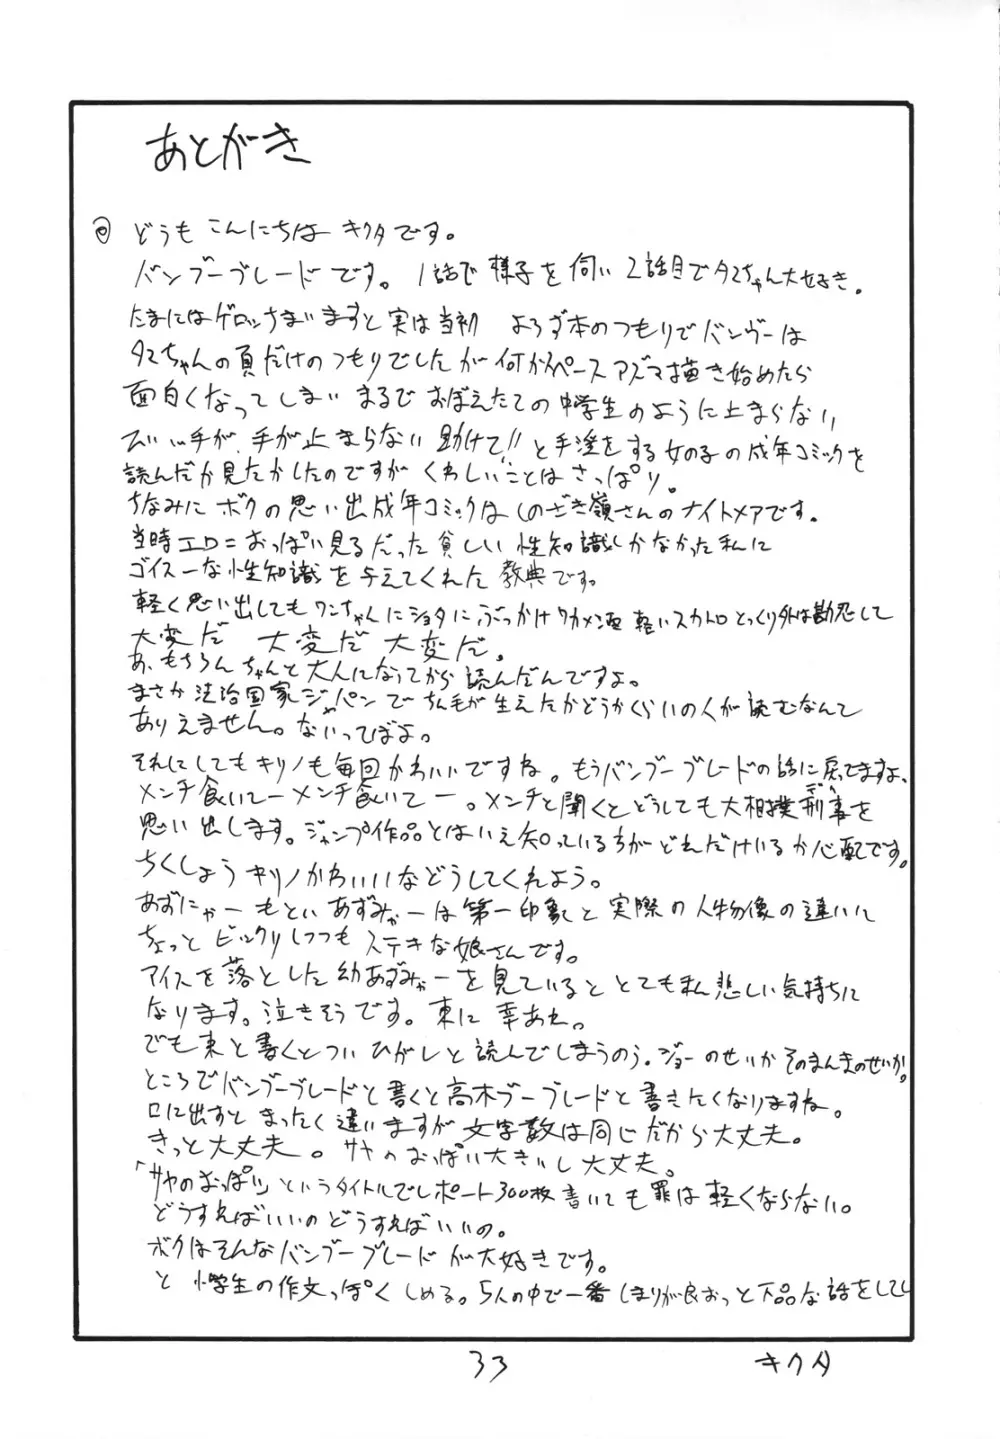 あとがき
どうも こんにちは キクタです。
バンブーブレードです。1話で様子を伺い2話目でタマちゃん大好き。
たまにはゲロッちまいますと実は当初 よろず本のつもりでバンブーは
タマちゃんの頁だけのつもりでしたが何かハイペースアズマ描き始めたら
面白くなってしまい まるでおぼえたての中学生のように止まらない
手が 手が止まらない 助けて!! と手淫をする女の子の成年コミックを
読んだか見たかしたのですが くわしいことはさっぱり。
ちなみに ボクの思い出成年コミックはしのざき嶺さんのナイトメアです。
当時エロ=おっぱい見るだった貧しい性知識しかなかった私に
ゴイスーな性知識を与えてくれた教典です。
軽く思い出してもワンちゃんにショタにぶっかけワカメ酒軽いスカトロとっくり外は勘忍して
大変だ 大変だ 大変だ。
あ、もちろんちゃんと大人になってから読んだんですよ。
まさか法治国家ジャパンでちん毛が生えたかどうかくらいの人が読むなんて
ありえません。ないってばよ。
それにしてもキリノも毎回かわいいですね。もうバンブーブレードの話に戻ってますよ、
メンチ食いてーメンチ食いてー。メンチと聞くとどうしても大相撲刑事を
思い出します。ジャンプ作品とはいえ知っている方がどれだけいるか心配です。
ちくしょうキリノかわいいなどうしてくれよう。
あずにゃーもといあずみゃーは第一印象と実際の人物像の違いに
ちょっとビックリしつつもステキな娘さんです。
アイスを落とした幼あずみゃーを見ているととても私悲しい気持ちに
なります。泣きそうです。東に幸あれ。
でも東と書くとついひがしと読んでしまうのう。ジョーのせいかそのまんまのせいか。
ところでバンブーブレードと書くと高木ブーブレードと書きたくなりますね。
口に出すとまったく違いますが文字数は同じだから大丈夫。
きっと大丈夫。サヤのおっぱい大きいし大丈夫。
「サヤのおっぱい」というタイトルでレポート300枚書いても罪は軽くならない。
どうすればいいのどうすればいいの。
ボクはそんなバンブーブレードが大好きです。
と 小学生の作文っぽくしめる。5人の中で一番しまりが良おっと下品な話をしてし
33 キクタ